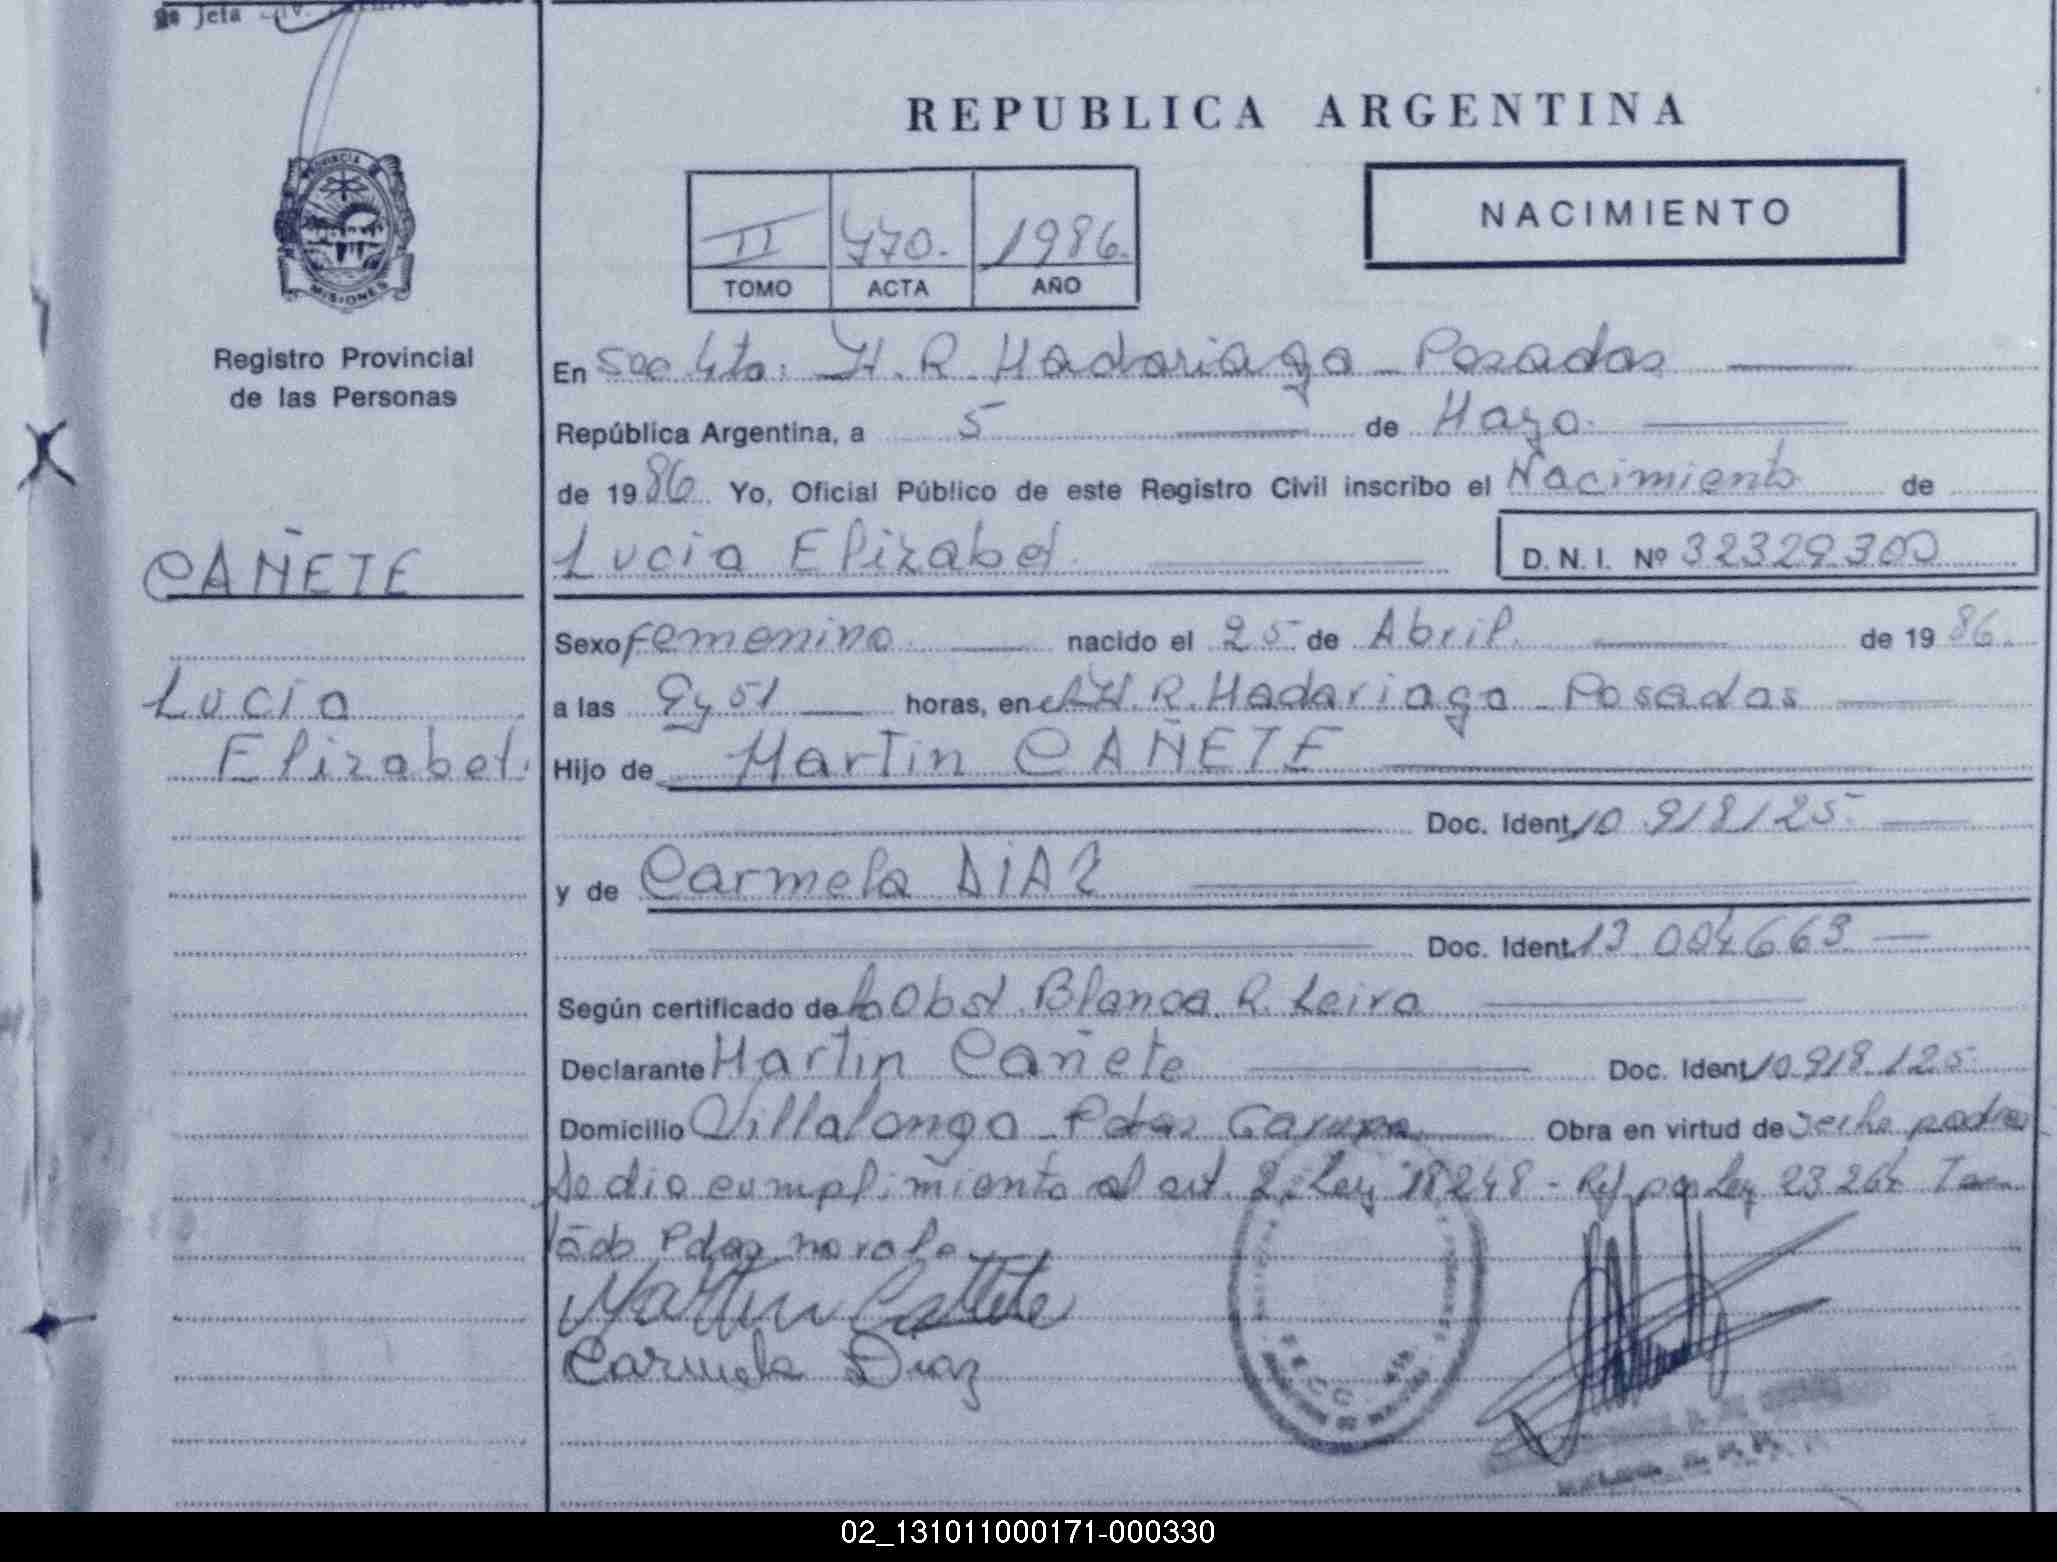 de Jefa
REPUBLICA ARGENTINA
PROVINCIA DE
MISIONES
II 770. 1986.
TOMO ACTA AÑO
NACIMIENTO
Registro Provincial
de las Personas
En Sec 4ta: H. R. Madariaga - Posadas
República Argentina, a 5 de Mayo.
de 1986 Yo, Oficial Público de este Registro Civil inscribo el Nacimiento de
CAÑETE
Lucia Elizabet
Lucia Elizabet. D. N. I. Nº 32329300
Sexo femenino. nacido el 25 de Abril. de 1986.
a las 9 y 51 horas, en el H. R. Madariaga - Posadas
Hijo de Martin CAÑETE
Doc. Ident. 10.918125
y de Carmela DIAZ
Doc. Ident. 13.004663
Según certificado de la Obst. Blanca R. Leiva
Declarante Martin Cañete Doc. Ident. 10.918.125
Domicilio Villalonga - Pdas Garupa Obra en virtud de ser los padres
Se dio cumplimiento al art. 2, Ley 18248 - Ref por Ley 23264
Pdas no vale
Martin Cañete
Carmela Diaz
02_131011000171-000330